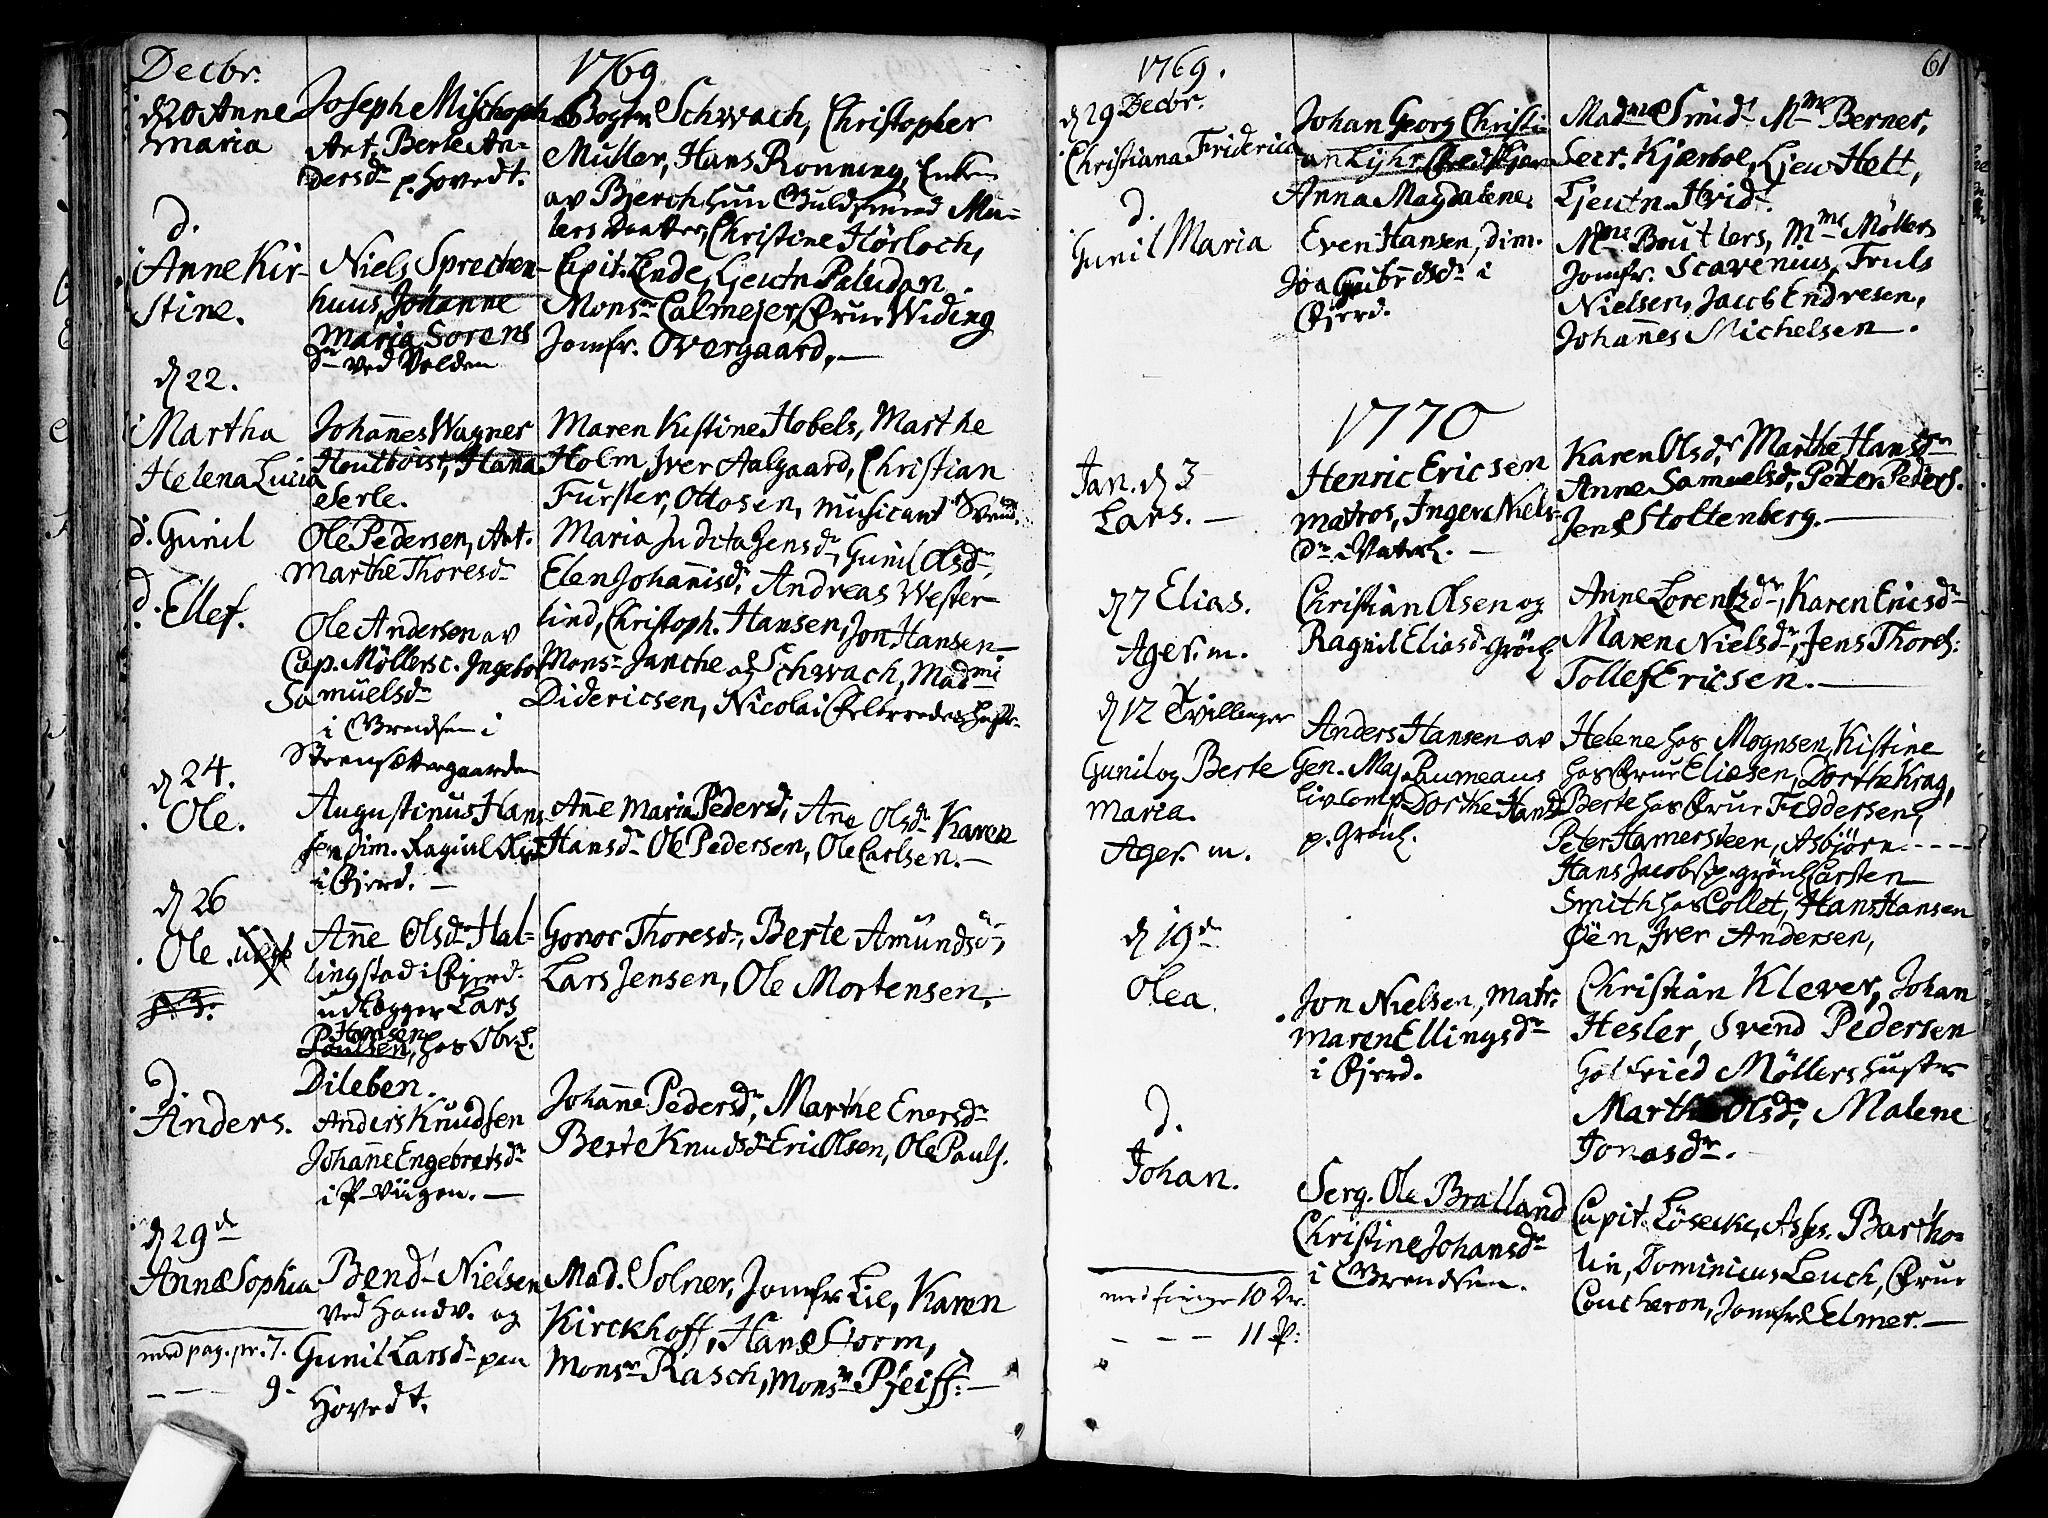 Decbr.
1769
d 20 Anne
maria
Joseph Mischoph
Art. Berte An-
dersdr p. Hovedt.
Schwach, Christopher
Muller, Hans Ronning, Enken
av Bjerch, hun Guldsmed Mu-
lers Daatter, Christine Hörloch,
d.
Anne Kir-
stine.
Niels Sprechen-
huus, Johanne
Maria Sorens
dr ved Volden
Capit. Ende, Lieutn Paludan
Monsr Calmejer, Frue Widing
Jomfr. Overgaard,
d 22.
Martha
Helena Lucia
Johañes Wagner
Houtboist, Hana
Serle.
Maren Kistine Hobels, Marthe
Holm Iver Aalgaard, Christian
Furster, Ottosen, musicant Svend.
d. Gunil
Ole Pedersen, Art.
Marthe Thoresdr
Maria Judita Jensdr, Gunil Olsdr,
Elen Johañisdr, Andreas Wester-
lind, Christoph. Hansen, Jon Hansen
d.
Ellef.
Ole Andersen av
Cap. Möllers c. Ingebor
Samuelsdr
i Grendsen i
Monsr Janche og Schwach, Mad.mi
Didericsen, Nicolai
d 24.
Ole.
Augustinus Hans
sen dim. Ragnil
i Fjerd.
Añe Maria Pedersdr, Ane Olsdr Karen
Hansdr Ole Pedersen, Ole Carlsen.
d 26
Ole
Añe Olsdr Hal-
lingstad i Fjerd.
udlægger Lars
Hansen
Poulsen, hos Obr.L.
Dileben.
Gonor Thoresdr, Berte Amundsdr,
Lars Jensen, Ole Mortensen.
d.
Anders.
Anders Knudsen
Johañe Engebretsdr
i P-viigen.
Johañe Pedersdr, Marthe Enersdr
Berte Knudsdr Eric Olsen, Ole Pauls.
d 29d
Anne Sophia
Bend. Nielsen
ved Handv. og
Gunil Larsdr paa
Hovedt.
Mad. Solner, Jomfr Lie, Karen
Kirckhoff, Hans Storm,
Monsr Rasch, Monsr Pfeiff:
med pag. pr. 7.
9-
61
1769.
d 29 Decbr.
Christiana Friderica
Johan Georg Christi-
an Lÿhr,
Anna Magdalene.
Madme Smidt Mme Berner,
Secr. Kjærboe, Ljeu Helt,
Ljeutn. Hvid.
d.
Gunil Maria
Even Hansen, dim.
Joa Gulbrdsdr i
Fjerd.
Mme Boutlers, Mme Möllers
Jomfr. Scavenius, Truls
Nielsen, Jacob Endresen,
Johañes Michelsen.
1770
Jan. d 3
Lars.
Henric Ericsen
matros, Inger Niels
dr i Vaterl.
Karen Olsdr, Marthe Hansdr
Anne Samuelsdr, Peter Peders.
Jens Stoltenberg.
d 7 Elias.
Ager. m.
Christian Olsen og
Ragnil Eliasdr Grönl.
Anne Lorentzdr, Karen Ericsdr
Maren Nielsdr, Jens Thores:
Tollef Ericsen.
d 12 Tvillinger
Gunil og Berte
Maria.
Ager. m.
Anders Hansen av
Gen. Maj. Paumeaus
livcomp Dorthe Hansd
p. Grönl.
Helene hos Mognsen, Kistine
hos Frue Eliesen, Dorthe Krag,
Berte hos Frue Feddersen,
Peter Hamersteen, Asbjörn
Hans Jacobs p. Grönl Carsten
Smith hos Collet, Hans Hansen
Öen, Iver Andersen,
d 19d
Olea.
Jon Nielsen, matr.
Maren Ellingsdr
i Fjerd.
Christian Klever, Johan
Hesler, Svend Pedersen
Gotfried Möllers hustr
Marthe Olsdr, Malene
Jonasdr.
d.
Johan.
Serg. Ole Bralland
Christine Johansdr
i Grendsen.
Capit. Löseke, Asses. Bartho-
lin, Dominicus Leuch, Frue
Coucheron, Jomfr Elmer.
med forige 10 Dr.
11 P: